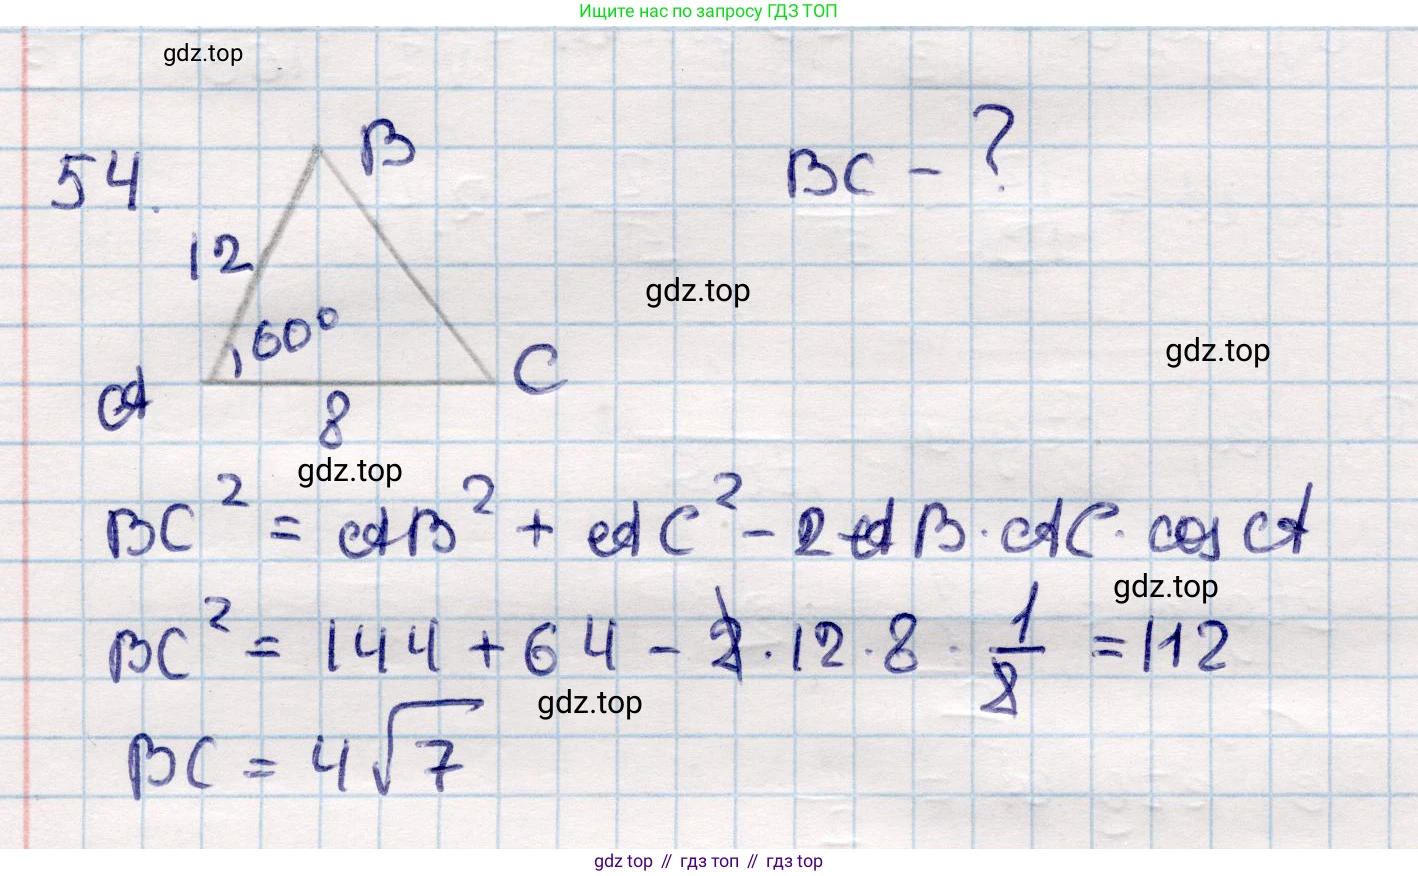 Ищите нас по запросу ГДЗ ТОП
gdz.top
54.
B
BC - ?
12
gdz.top
60°
gdz.top
A
C
8
gdz.top
BC² = AB² + AC² - 2AB · AC · cos A
gdz.top
BC² = 144 + 64 - 2 · 12 · 8 · 1/2 = 112
gdz.top
BC = 4√7
gdz top // гдз топ // гдз top